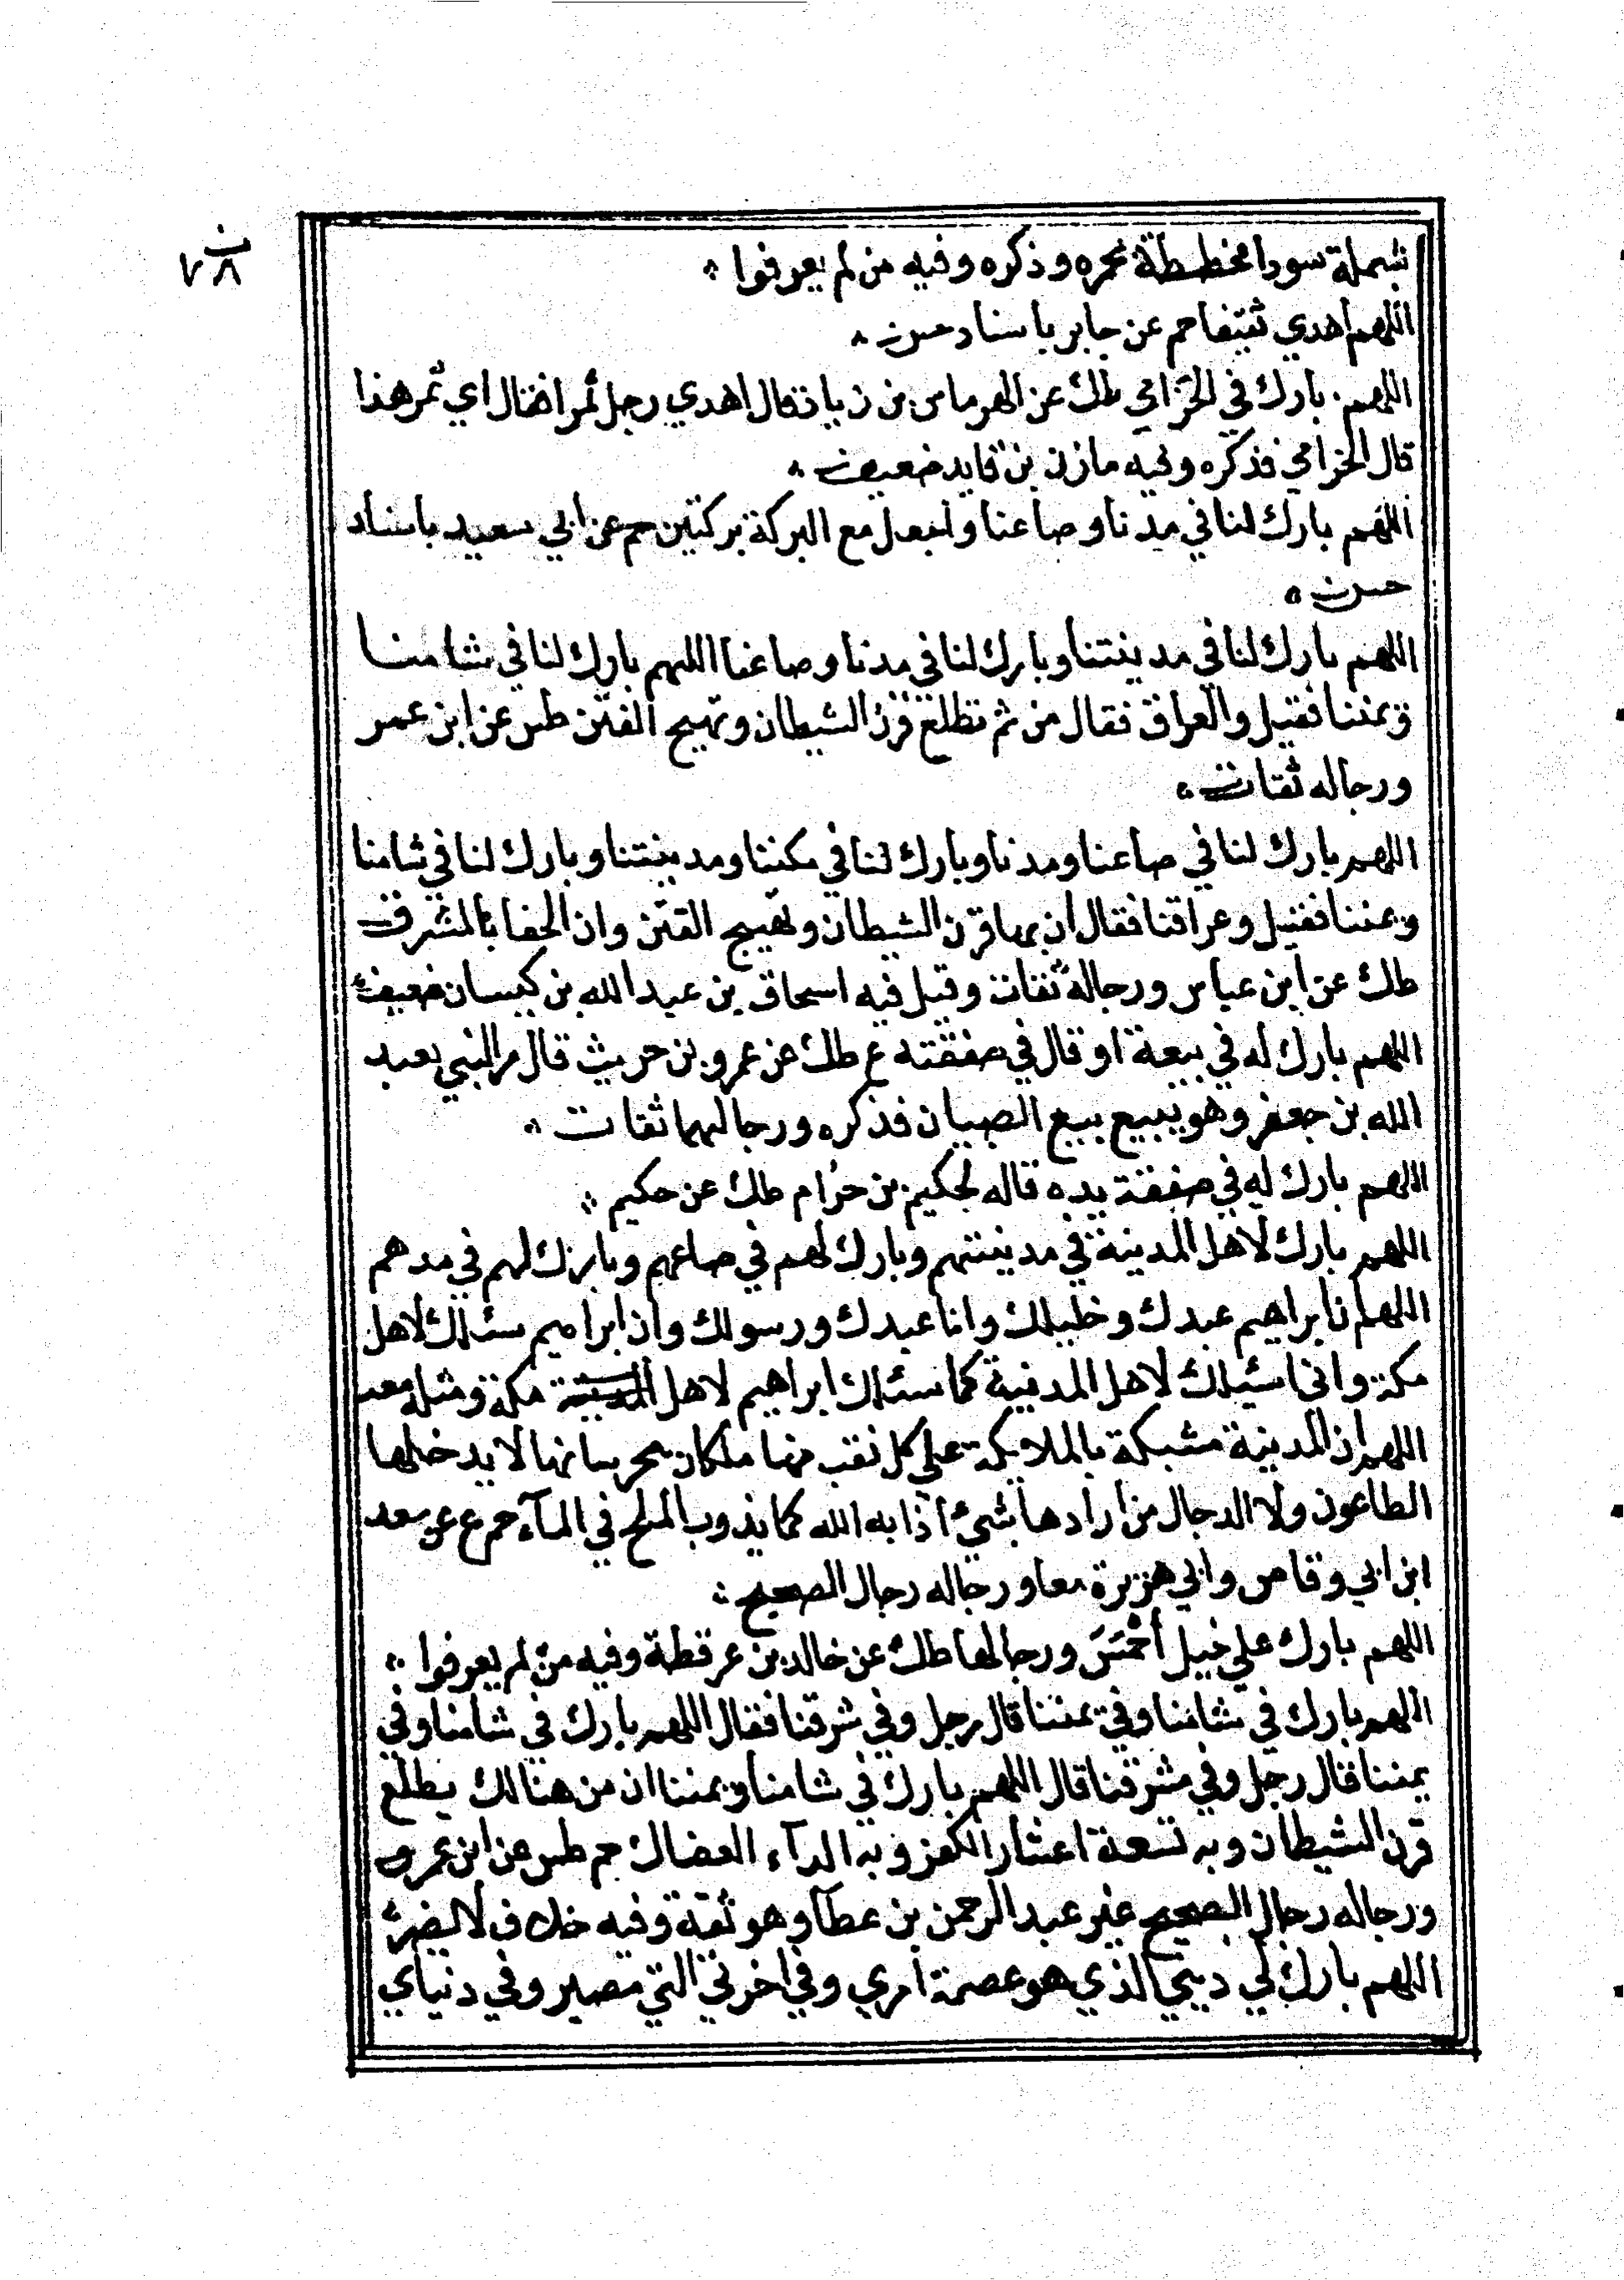 شملة سودا مخططة نمره وذكره وفيه من لم يعرفوا
اللهم اهدي ثقيفا حم عن جابر باسناد حسن
اللهم بارك في الخزامي طك عن الهرماس بن زياد قال اهدي رجل تمرا فقال اي تمر هذا
قال الخزامي فذكره وفيه مازن بن فايد ضعيف
اللهم بارك لنا في مدنا وصاعنا واجعل مع البركة بركتين حم عن ابي سعيد باسناد
حسن
اللهم بارك لنا في مدينتنا وبارك لنا في مدنا وصاعنا اللهم بارك لنا في شامنا
ويمننا فقيل والعراق فقال من ثم تطلع قرن الشيطان وتهيج الفتن طس عن ابن عمر
ورجاله ثقات
اللهم بارك لنا في صاعنا ومدنا وبارك لنا في مكتنا ومدينتنا وبارك لنا في شامنا
ويمننا فقيل وعراقنا فقال ان بها قرن الشيطان وتهيج الفتن وان الجفا بالمشرق
طك عن ابن عباس ورجاله ثقات وقيل فيه اسحاق بن عبد الله بن كيسان ضعيف
اللهم بارك له في بيعة او قال في صفقته ع طك عن عمرو بن حريث قال مر النبي بعبد
الله بن جعفر وهو يبيع بيع الصبيان فذكره ورجالهما ثقات
اللهم بارك له في صفقة يده قاله لحكيم بن حزام طك عن حكيم
اللهم بارك لاهل المدينة في مدينتهم وبارك لهم في صاعهم وبارك لهم في مدهم
اللهم ان ابراهيم عبدك وخليلك وانا عبدك ورسولك وان ابراهيم سئلك لاهل
مكة واني اسئلك لاهل المدينة كما سئلك ابراهيم لاهل مكة ومثله معه
اللهم ان المدينة مشبكة بالملايكة علي كل نقب منها ملكان يحرسانها لا يدخلها
الطاعون ولا الدجال من ارادها بشيء اذابه الله كما يذوب الملح في المآء حم ع عن سعد
ابن ابي وقاص وابي هريرة معا ورجاله رجال الصحيح
اللهم بارك علي خيل أحمس ورجالها طك عن خالد بن عرفطة وفيه من لم يعرفوا
اللهم بارك في شامنا وفي يمننا قال رجل وفي شرقنا فقال اللهم بارك في شامنا وفي
يمننا قال رجل وفي مشرقنا قال اللهم بارك في شامنا ويمننا ان من هنالك يطلع
قرن الشيطان وبه تسعة اعشار الكفر وبه الدآء العضال حم طس عن ابن عمر
ورجاله رجال الصحيح غير عبد الرحمن بن عطآ وهو ثقة وفيه خلاف لا يضر
اللهم بارك لي ديني الذي هو عصمة امري وفي اخرتي التي مصير وفي دنياي